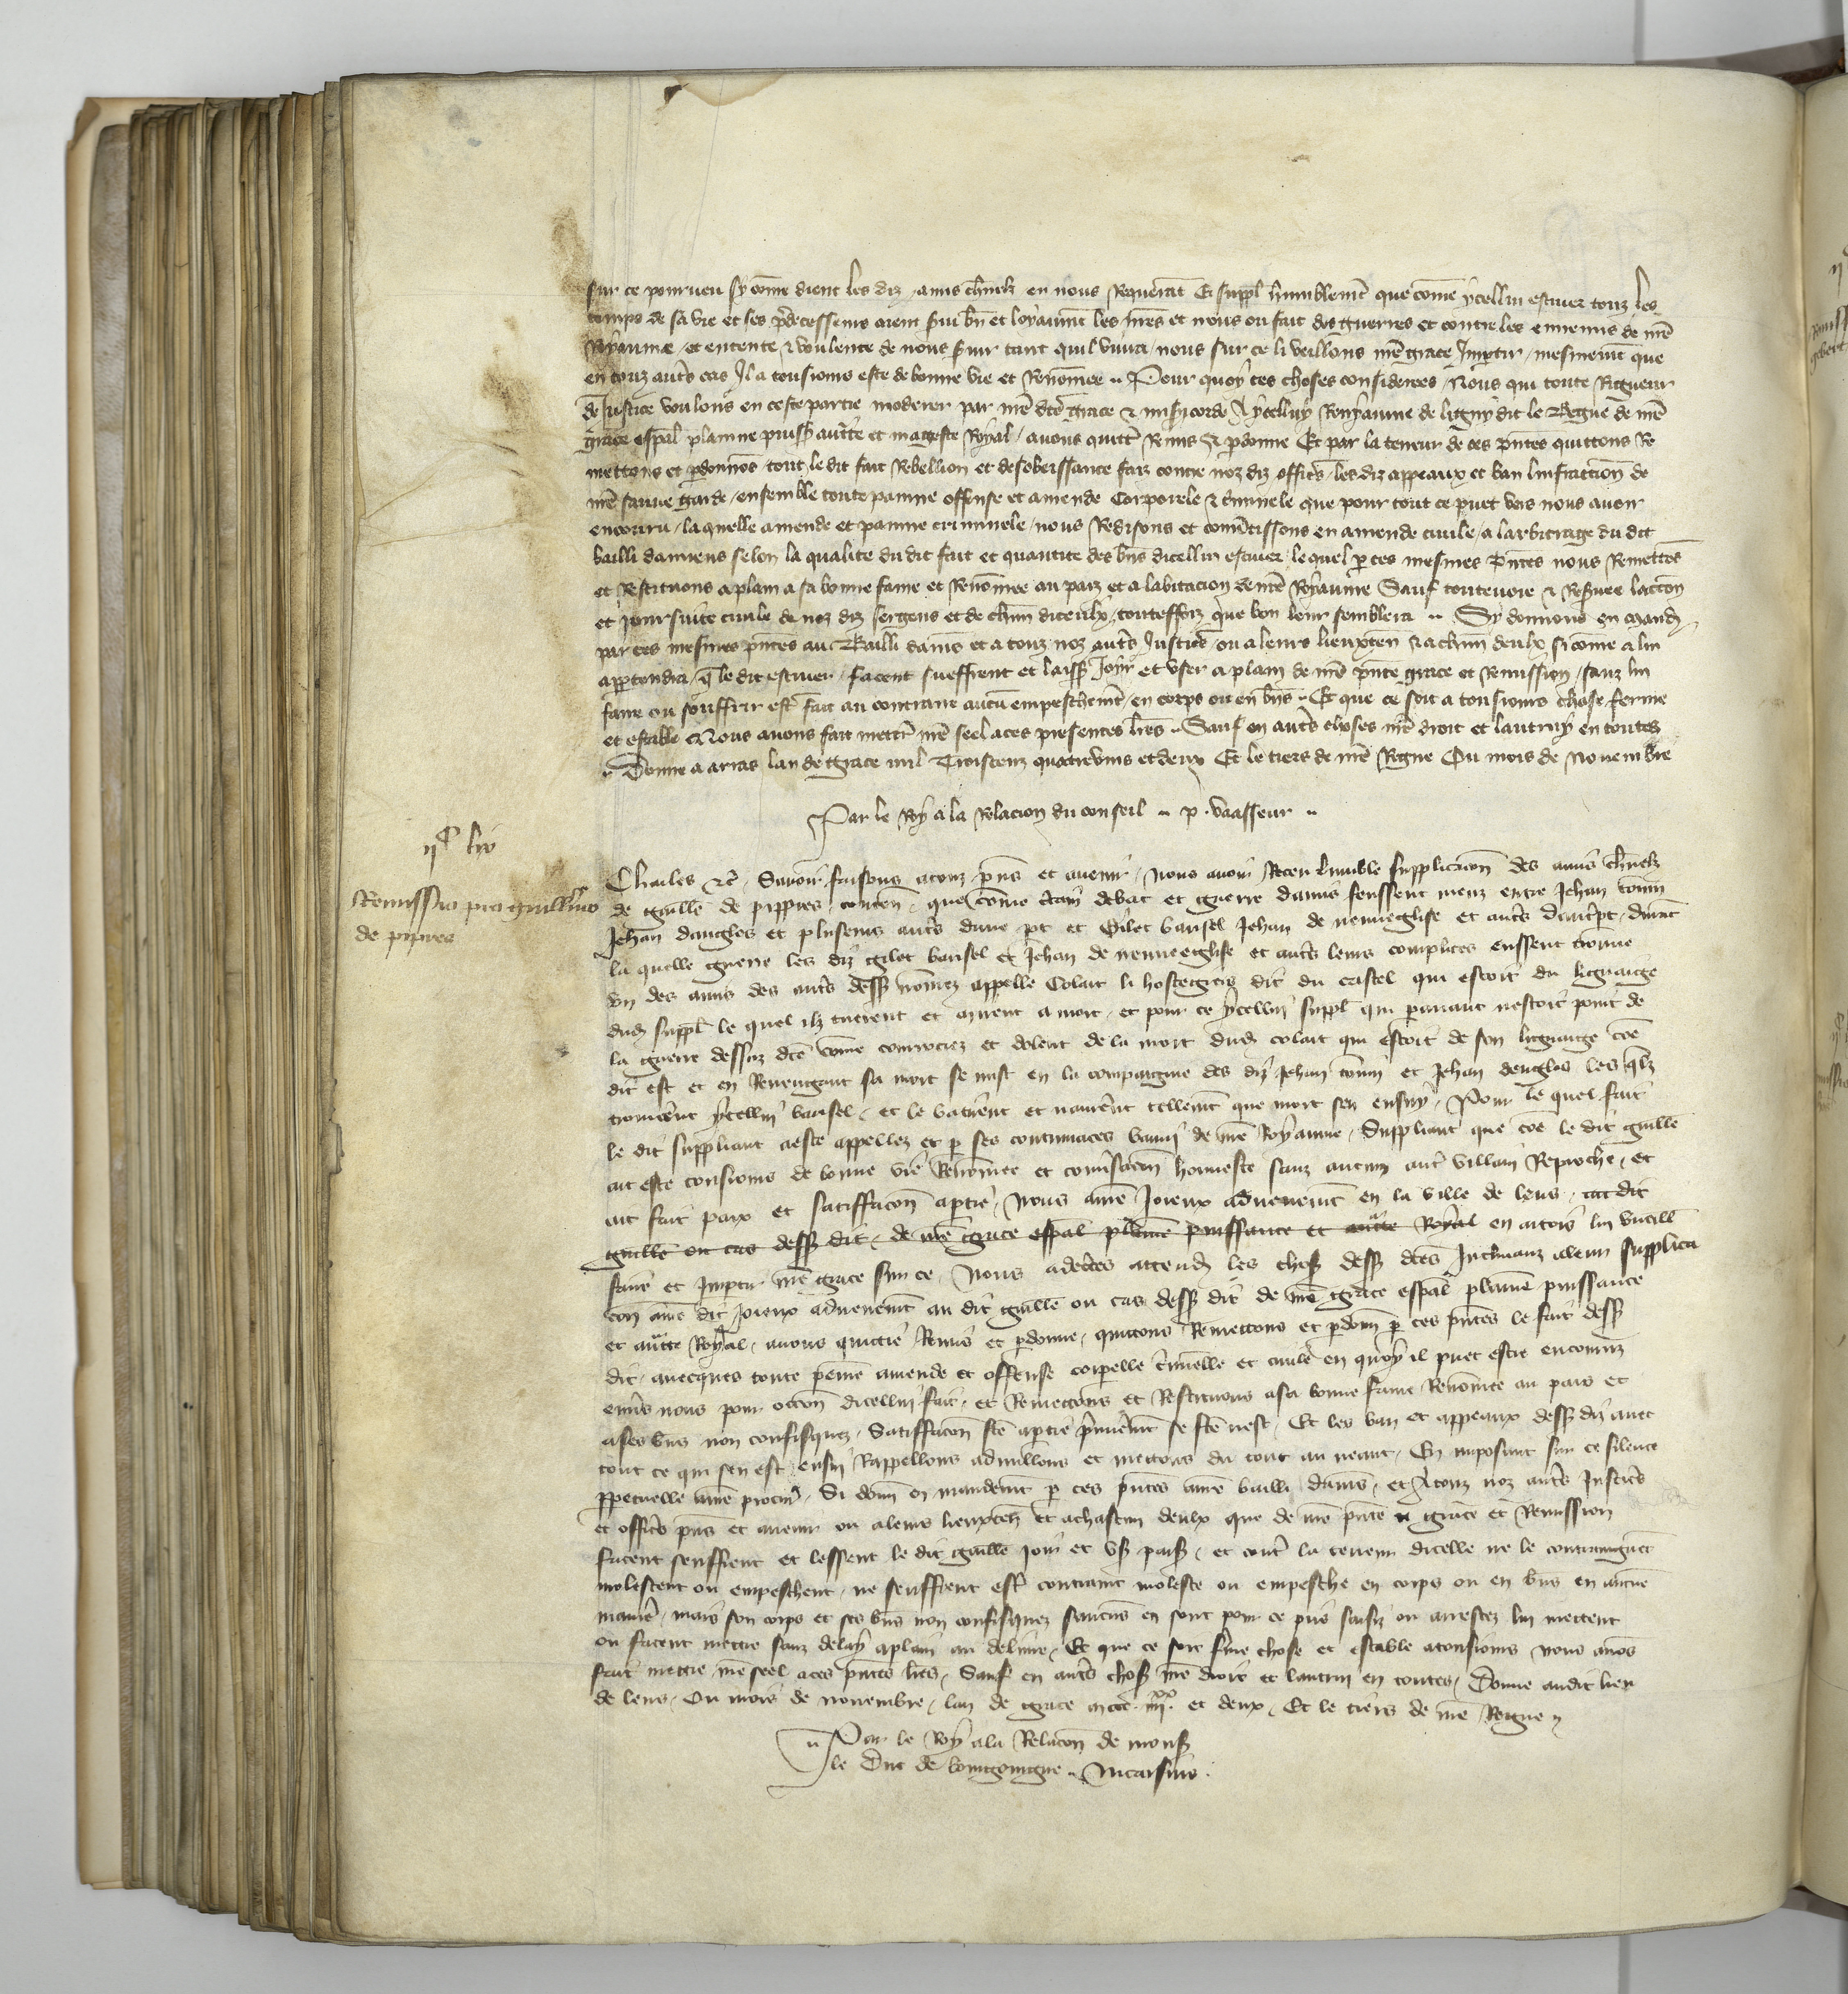 sur ce pourueu sy come dient les diz amis charnelz en nous requerant Et suppl humblemt que come ycellui escuier touz les
temps de sa vie et ses predecesseurs aient serui bn et loyaumt les nres et nous ou fait des guerres et contre les ennemis de nre
Royaume et entente & voulente de nous seruir tant quil viura nous sur ce li veillons nre grace Impartir mesmemt que
en touz autres cas Il a tousiours este de bonne vie et Renomee Pour quoy ces choses considerees Nous qui toute Rigueur
de Justice voulons en ceste partie moderer par nre dce grace & misericorde A ycelluy Royaume de ligny dit le Begue de nre
grace espal plainne puiss auctte et mageste Royal auons quitte Remis & pardonne Et par la teneur de ces pntes quittons Re
mettons et pardonnons tout le dit fait Rebellion et desobeissance faiz contre noz diz offices les diz appeaux et ban linfraction de
nre sauue garde ensemble toute painne offense et amende Corporele & criminele que pour tout ce puet vers nous auoir
encouru laquelle amende et painne criminele nous Redisons et comutissons en amende ciuile a larbitrage du dit
bailli damiens selon la qualite du dit fait et quantite des bns dicellui escuier lequel par ces mesmes pntes nous Remettons
et Restituons a plain a sa bonne fame et Renomee au paiz et a labitacion de nre Royaume Sauf touteuoie & Reseruee laction
et poursuite ciuile de noz diz sergens et de chun diceulx touteffoiz que bon leur semblera Sy donnons en mand
par ces mesmes pntes au Bailli damiens et a touz noz autres Justices ou a leurs lieuxten & a chun deulx si come a lui
appartendra que le dit escuier facent sueffrent et laissent Joir et vser a plain de nre pnte grace et Remission sanz lui
faire ou souffrir estre fait au contraire aucun empeschemt en corps ou en bns Et que ce soit a tousiours chose ferme
et estable Nous auons fait mettre nre seel a ces presentes lres Sauf en autres choses nre droit et lautruy en toutes
Donne a arras lan de grace mil Troiscenz quatrevins et deux Et le tiers de nre Regne Ou mois de Nouembre
Par le Roy a la Relacion du conseil p. vaasseur
iic liv
Remissio pro guillmo
de pipres
Charles &c Sauoir faisons a touz pns et auenir Nous auoir Receu lumble supplicacion des amis charnelz
de guille de pippres conten que come certain debat et guerre dannis feussent meuz entre Jehan
Jehan dangles et pluseurs autres dune pt et Gilet bausel Jehan de neuueglise et autres dautre pt durant
la quelle guerre les diz gilet bausel et Jehan de neuueeglise et autres leurs complices eussent trouue
vn des amis des autres dess nomez appelle Colart li hostegers dit du castel qui estoit du lignaige
dud suppl le quel ilz tuerent et mirent a mort et pour ce ycellui suppl qui parauant nestoit point de
la guerre dessus dce come courrociez et dolent de la mort dud colart qui estoit de son lignaige coe
dit est et en Reuengant sa mort se mist en la compaignie des diz Jehan et Jehan dengles les quelz
trouuerent ycellui bausel et le batirent et naurerent tellemt que mort sen ensuy Pour le quel fait
le dit suppliant a este appellez et par ses contumaces banni de nre Royaume Suppliant que coe le dit guille
ait este tousiours de bonne vie Renomee et conuersacion honneste sanz aucun autre villain Reproche et
ait fait paix et satiffacon a partie Nous a nre Joieux aduenemt en la ville de lens au dit
guille ou cas dess dit de nre grace espal plaine puissance et auctte Royal en artois lui vueill
faire et Impartir nre grace sur ce Nous adcertes attend les choses dess dces Inclinanz a leur supplica
con a nre dit Joieux aduenemt au dit guille ou cas dess dit de nre grace espal plaine puissance
et auctte Royal auons quictie Remis et pardonne quictons Remettons et pardonn par ces pntes le fait dess
dit auecques toute peine amende et offense corporelle crimelle et ciuile en quoy il puet estre encouruz
enuers nous pour occon dicellui fait et Remettons et Restituons a sa bonne fame Renomee au pais et
a ses bns non confisquez Satiffacon fce a partie premieremt se fce nest Et les ban et appeaux dess diz auec
tout ce qui sen est ensui Rappellons adnullons et mettons du tout au neant En imposant sur ce silence
perpetuelle a nre procur Si donn en mandemt par ces pntes a nre bailli damiens et A touz noz autres Justices
et offices pns et auenir ou a leurs lieuxten et a chascun deulx que de nre pnte grace et Remission
facent seuffrent et lessent le dit guille joir et vser paisib et contre la teneur dicelle ne le contraingnent
molestent ou empeschent ne seuffrent estre contraint moleste ou empesche en corps ou en bns en aucune
maniere mais son corps et ses bns non confisquez saucuns en sont pour ce pris saisiz ou arrestez lui mettent
ou facent mettre sanz delay a plain au deliure Et que ce soit ferme chose et estable a tousiours nous auons
fait mettre nre seel a ces pntes lres Sauf en autres choses nre droit et lautrui en toutes Donne audit lieu
de lens Ou mois de nouembre lan de grace mccc iiiixx et deux Et le tiers de nre Regne
Par le Roy a la Relacon de mons
le Duc de bourgoingne